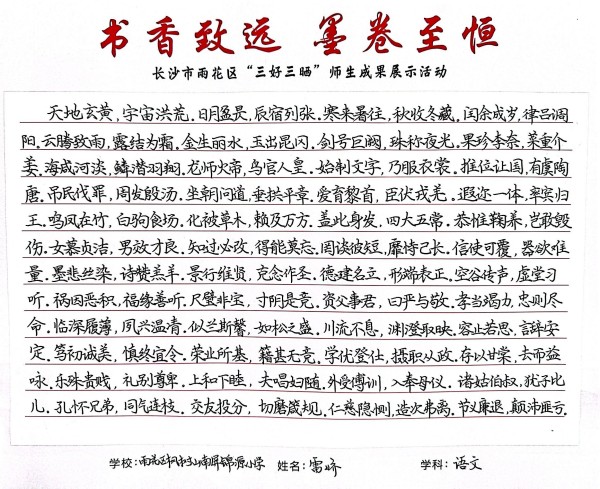 书香致远 墨卷至恒
长沙市雨花区“三好三晒”师生成果展示活动
天地玄黄,宇宙洪荒.日月盈昃,辰宿列张.寒来暑往,秋收冬藏.闰余成岁,律吕调
阳.云腾致雨,露结为霜.金生丽水,玉出昆冈.剑号巨阙,珠称夜光.果珍李柰,菜重介
姜.海咸河淡,鳞潜羽翔.龙师火帝,鸟官人皇.始制文字,乃服衣裳.推位让国,有虞陶
唐.吊民伐罪,周发殷汤.坐朝问道,垂拱平章.爱育黎首,臣伏戎羌.遐迩一体,率宾归
王.鸣凤在竹,白驹食场.化被草木,赖及万方.盖此身发,四大五常.恭惟鞠养,岂敢毁
伤.女慕贞洁,男效才良.知过必改,得能莫忘.罔谈彼短,靡恃己长.信使可覆,器欲难
量.墨悲丝染,诗赞羔羊.景行维贤,克念作圣.德建名立,形端表正.空谷传声,虚堂习
听.祸因恶积,福缘善听.尺璧非宝,寸阴是竞.资父事君,曰严与敬.孝当竭力,忠则尽
命.临深履薄,夙兴温清.似兰斯馨,如松之盛.川流不息,渊澄取映.容止若思,言辞安
定.笃初诚美,慎终宜令.荣业所基,籍甚无竞.学优登仕,摄取从政.存以甘棠,去而益
咏.乐殊贵贱,礼别尊卑.上和下睦,夫唱妇随.外受傅训,入奉母仪.诸姑伯叔,犹子比
儿.孔怀兄弟,同气连枝.交友投分,切磨箴规.仁慈隐恻,造次弗离.节义廉退,颠沛匪亏.
学校:雨花区 小学 姓名:雷娇 学科:语文